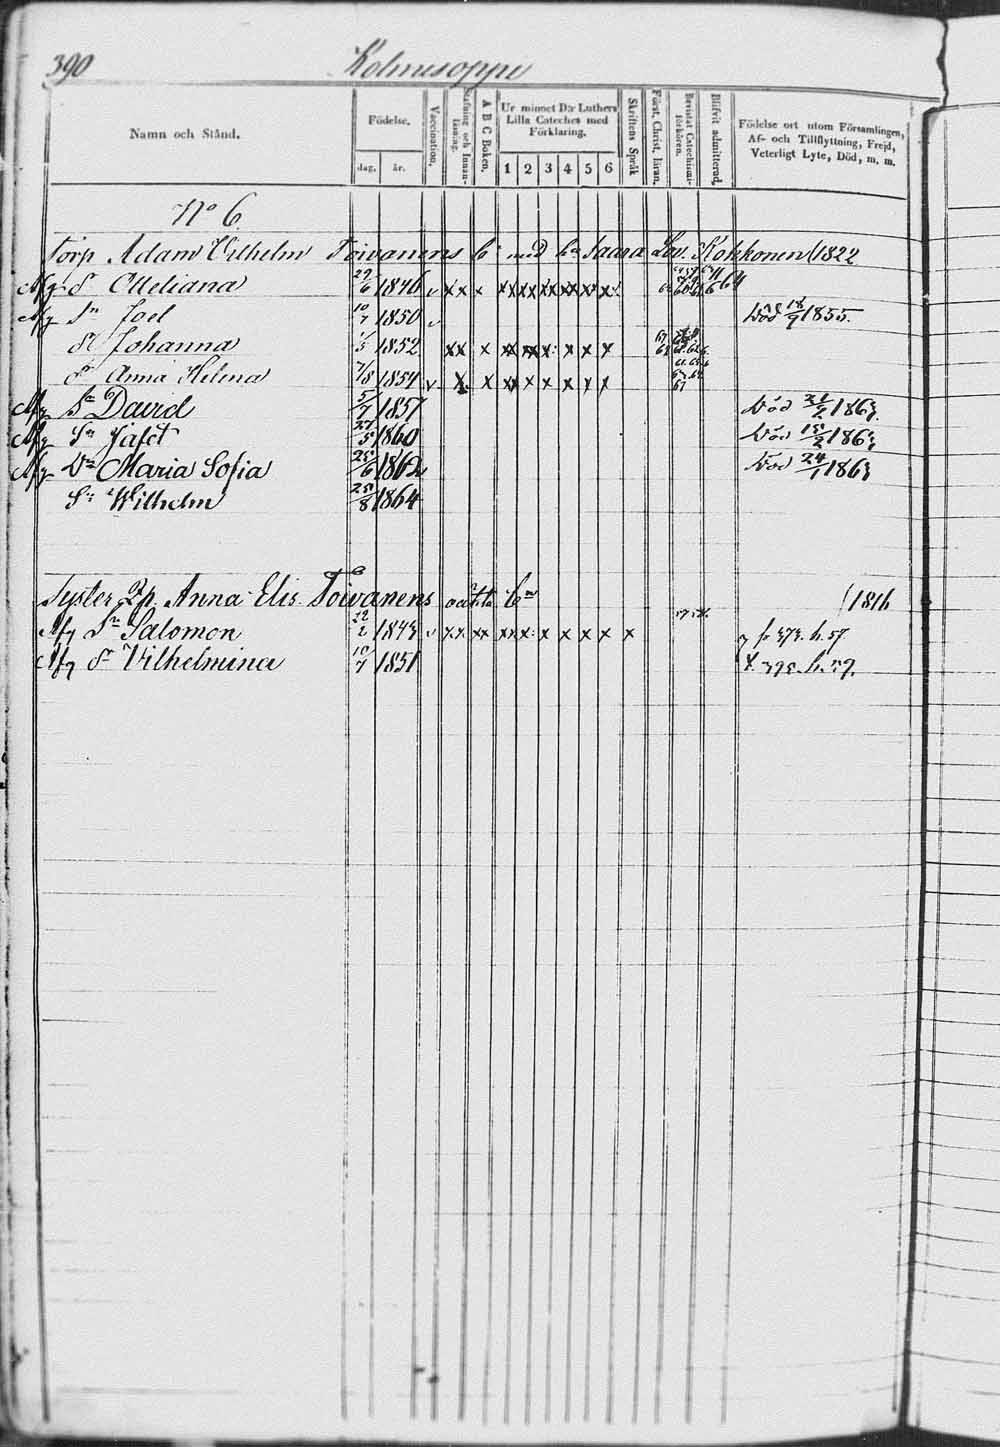 390 Kolmisoppi
Namn och Stånd. Födelse. dag. år. Vaccination. Stafning och Innanläsning. A B C Boken. Ur minnet D:r Luthers Lilla Cateches med Förklaring. 1 2 3 4 5 6 Skriftens Språk Först. Christ. läran. Bevistat Catechismiförhören. Blifvit admitterad. Födelse ort utom Församlingen, Af- och Tillflyttning, Frejd, Veterligt Lyte, Död, m. m.
No 6.
Torp Adam Vilhelm Toivanens med Saara Lov. Kokkonen 1822
Afg. Otteliana 29/6 1846 v x x x x x x x x x x 64
Afg Sn Joel 10/7 1850 v Död 18/9 1855.
Dr Johanna 1/5 1852 x x x x x x x x x
Dr Anna Helena 7/8 1854 v x x x x x x x x
Afg Sn David 5/7 1857 Död 21/2 1863.
Afg Sn Jafet 27/5 1860 Död 15/2 1863
Afg Dr Maria Sofia 25/6 1862 Död 24/1 1863
Sn Wilhelm 25/8 1864
Syster Anna Elis. Toivanens oäkta Bn 1816
Afg Sn Salomon 22/2 1843 v x x x x x x x x x x x 57.58. 373. h. 57
Afg Dr Vilhelmina 10/7 1851 h. 59.